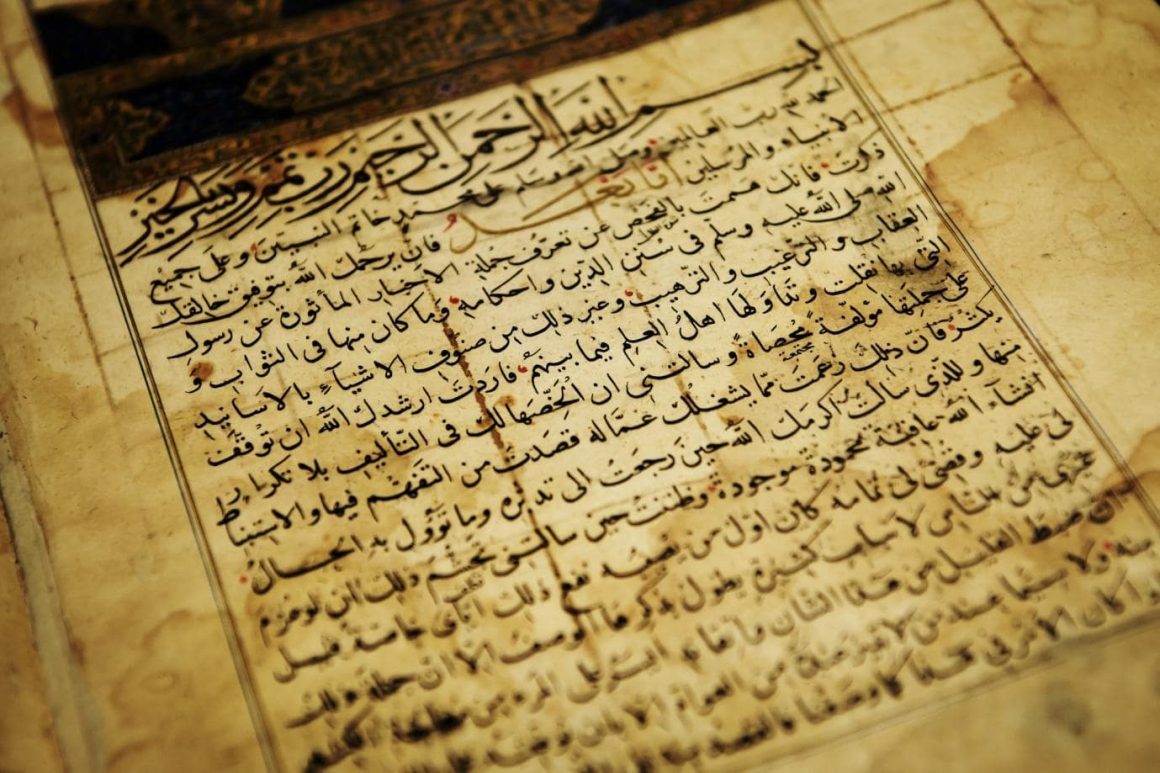 بسم الله الرحمن الرحيم رب تمم ويسر بالخير
الحمد لله رب العالمين وصلى الله وسلم على محمد خاتم النبيين وعلى جميع
الانبياء والمرسلين اما بعد فانك يرحمك الله بتوفيق خالقك
ذكرت انك هممت بالفحص عن تعرف جملة الاخبار المأثورة عن رسول
الله صلى الله عليه وسلم في سنن الدين واحكامه وما كان منها في الثواب و
العقاب والترغيب والترهيب وغير ذلك من صنوف الاشياء بالاسانيد
التي بها نقلت وتداولها اهل العلم فيما بينهم فاردت ارشدك الله ان توقف
على جملتها مؤلفة محصاة وسالتني ان الخصها لك في التأليف بلا تكرار
يكثر فان ذلك زعمت مما يشغلك عما له قصدت من التفهم فيها والاستنبا
منها وللذي سالت اكرمك الله حين رجعت الى تدبره وما تؤول به الحال
انشاء الله عاقبة محمودة موجودة وظننت حين سالتني تجشم ذلك ان لو عزم
لي عليه وقضى لي تمامه كان اول من يصيبه نفع ذلك اياي خاصة قبل
غيري من الناس لاسباب كثيرة يطول بذكرها الوصف الا ان جملة ذلك
ان ضبط القليل من هذا الشان
منه ولا سيما عند من لا من العوام